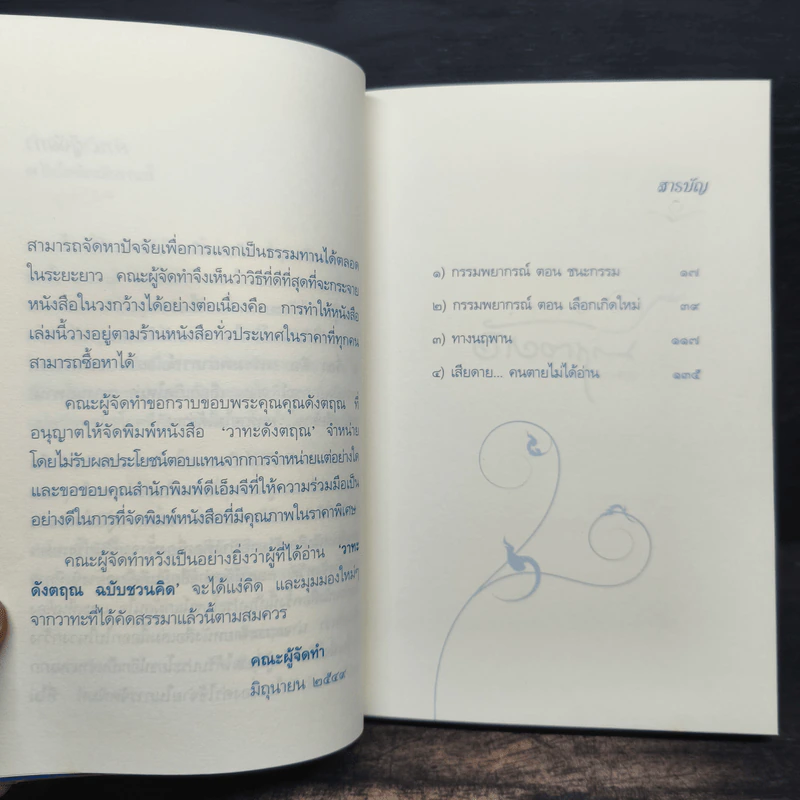 สามารถจัดหาปัจจัยเพื่อการแจกเป็นธรรมทานได้ตลอด
ในระยะยาว คณะผู้จัดทำจึงเห็นว่าวิธีที่ดีที่สุดที่จะกระจาย
หนังสือในวงกว้างได้อย่างต่อเนื่องคือ การทำให้หนังสือ
เล่มนี้วางอยู่ตามร้านหนังสือทั่วประเทศในราคาที่ทุกคน
สามารถซื้อหาได้
คณะผู้จัดทำขอกราบขอบพระคุณคุณดังตฤณ ที่
อนุญาตให้จัดพิมพ์หนังสือ 'วาทะดังตฤณ' จำหน่าย
โดยไม่รับผลประโยชน์ตอบแทนจากการจำหน่ายแต่อย่างใด
และขอขอบคุณสำนักพิมพ์ดีเอ็มจีที่ให้ความร่วมมือเป็น
อย่างดีในการที่จัดพิมพ์หนังสือที่มีคุณภาพในราคาพิเศษ
คณะผู้จัดทำหวังเป็นอย่างยิ่งว่าผู้ที่ได้อ่าน 'วาทะ
ดังตฤณ ฉบับชวนคิด' จะได้แง่คิด และมุมมองใหม่ๆ
จากวาทะที่ได้คัดสรรมาแล้วนี้ตามสมควร
คณะผู้จัดทำ
มิถุนายน ๒๕๔๙
สารบัญ
๑) กรรมพยากรณ์ ตอน ชนะกรรม ๑๗
๒) กรรมพยากรณ์ ตอน เลือกเกิดใหม่ ๓๙
๓) ทางนฤพาน ๑๑๗
๔) เสียดาย... คนตายไม่ได้อ่าน ๑๓๕